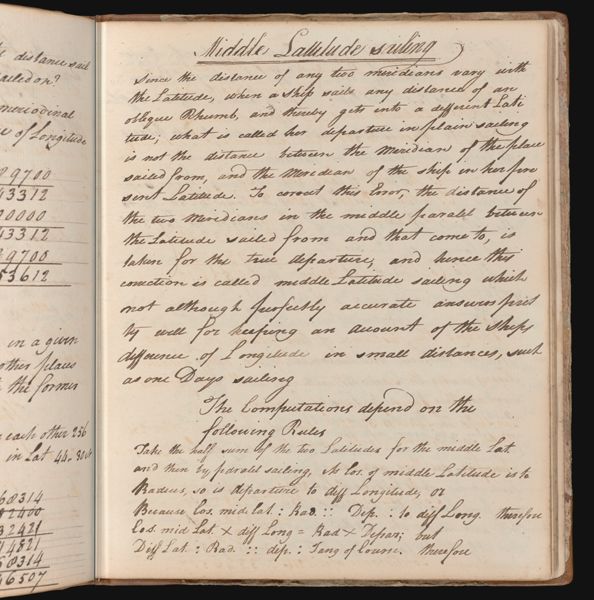 distance sail
sailed on?
meridinal
of Longitude
9700
43312
0000
43312
9700
53612
in a given
other places
the former
each other 256
in Lat 44.30
68314
32421
14821
58314
46507
Middle Latitude sailing
Since the distance of any two meridians vary with
the Latitude, when a ship sails any distance of an
oblique Rhumb, and thereby gets into a different Lati
tude; what is called her departure in plain sailing
is not the distance between the Meridian of the place
sailed from, and the Meridian of the ship in her pre
sent Latitude. To corect this Error, the distance of
the two Meridians in the middle paralel between
the Latitude sailed from and that come to, is
taken for the true departure, and hence this
correction is called middle Latitude sailing which
not although perfectly accurate answers prit
ty well for keeping an account of the ships
difference of Longitude in small distances, such
as one Days sailing
The Computations depend on the
following Rules
Take the half sum of the two Latitudes for the middle Lat.
and then by paralel sailing, As Cos. of middle Latitude is to
Radius, so is departure to diff Longitude, or
Because Cos. mid lat : Rad :: Dep. : to diff Long. therefore
Cos. mid Lat × diff Long = Rad × Depar; but
Diff Lat : Rad. :: dep. : Tang of Course. therefore